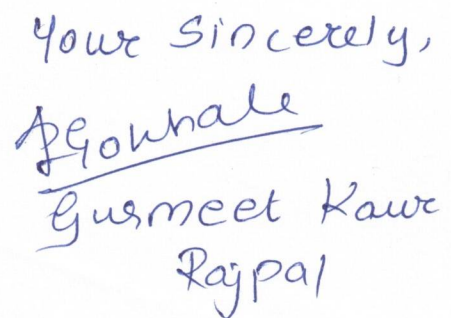 Your Sincerely,
Gokhale
Gurmeet Kaur
Rajpal